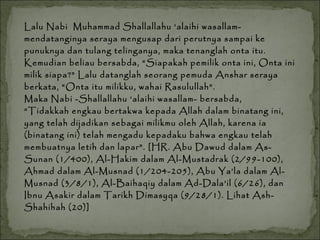 Lalu Nabi  Muhammad Shallallahu 'alaihi wasallam-
mendatanginya seraya mengusap dari perutnya sampai ke
punuknya dan tulang telinganya, maka tenanglah onta itu.
Kemudian beliau bersabda, "Siapakah pemilik onta ini, Onta ini
milik siapa?" Lalu datanglah seorang pemuda Anshar seraya
berkata, "Onta itu milikku, wahai Rasulullah".
Maka Nabi -Shallallahu 'alaihi wasallam- bersabda,
"Tidakkah engkau bertakwa kepada Allah dalam binatang ini,
yang telah dijadikan sebagai milikmu oleh Allah, karena ia
(binatang ini) telah mengadu kepadaku bahwa engkau telah
membuatnya letih dan lapar". [HR. Abu Dawud dalam As-
Sunan (1/400), Al-Hakim dalam Al-Mustadrak (2/99-100),
Ahmad dalam Al-Musnad (1/204-205), Abu Ya'la dalam Al-
Musnad (3/8/1), Al-Baihaqiy dalam Ad-Dala'il (6/26), dan
Ibnu Asakir dalam Tarikh Dimasyqa (9/28/1). Lihat Ash-
Shahihah (20)]